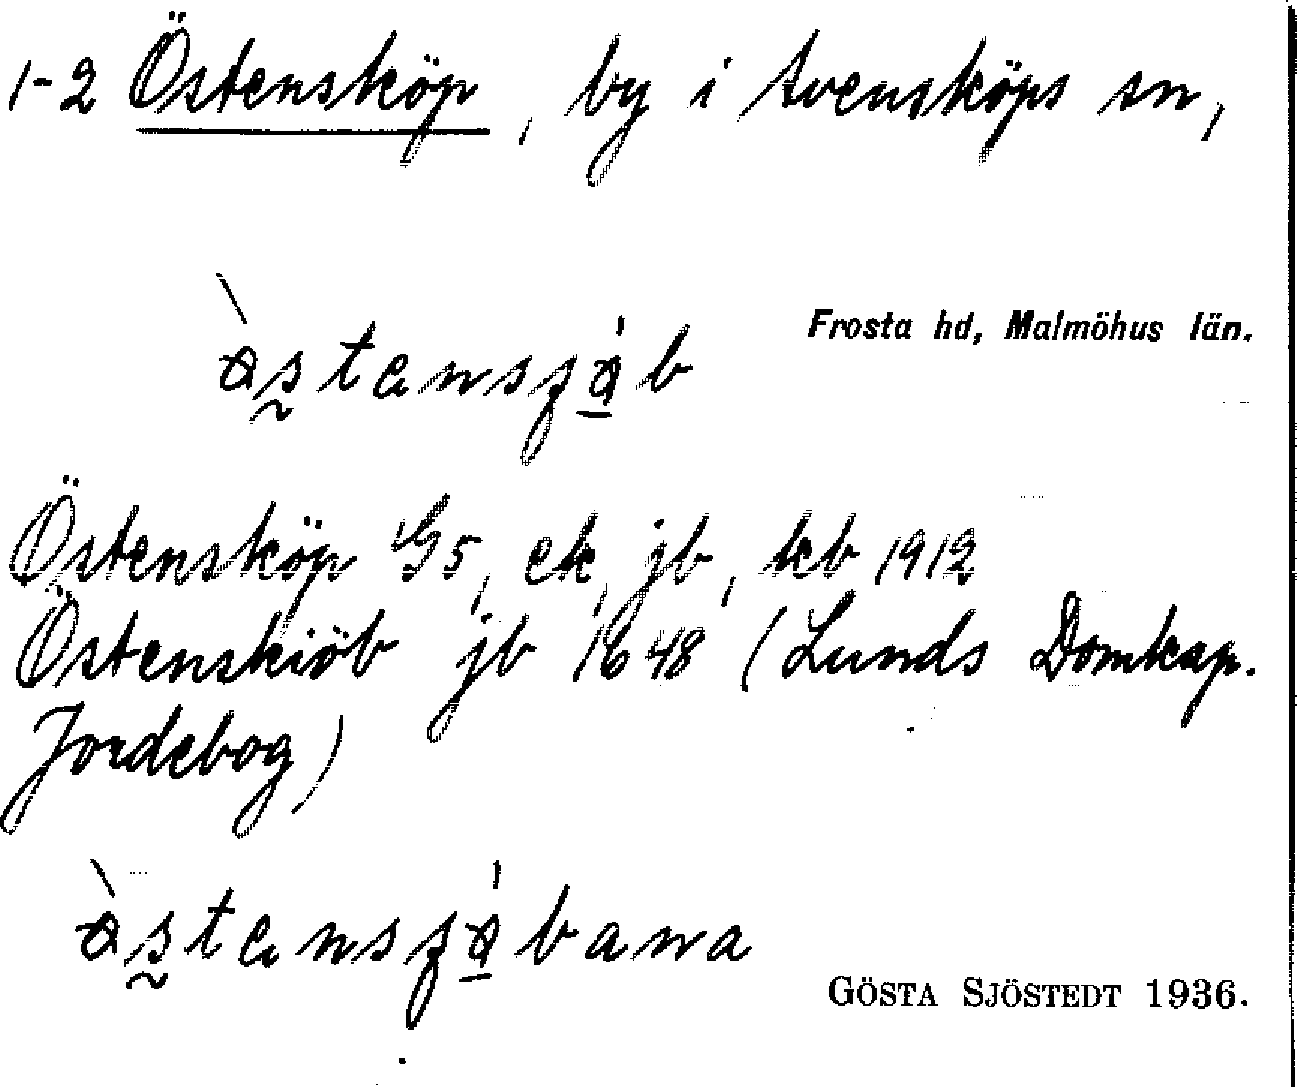 1-2 Östensköp, by i Svensköps sn,
Frosta hd, Malmöhus län.
Östensköp G5, ek, jb, kb 1912
Östenskiöb jb 1648 (Lunds Domkap.
Jordebog)
GÖSTA SJÖSTEDT 1936.